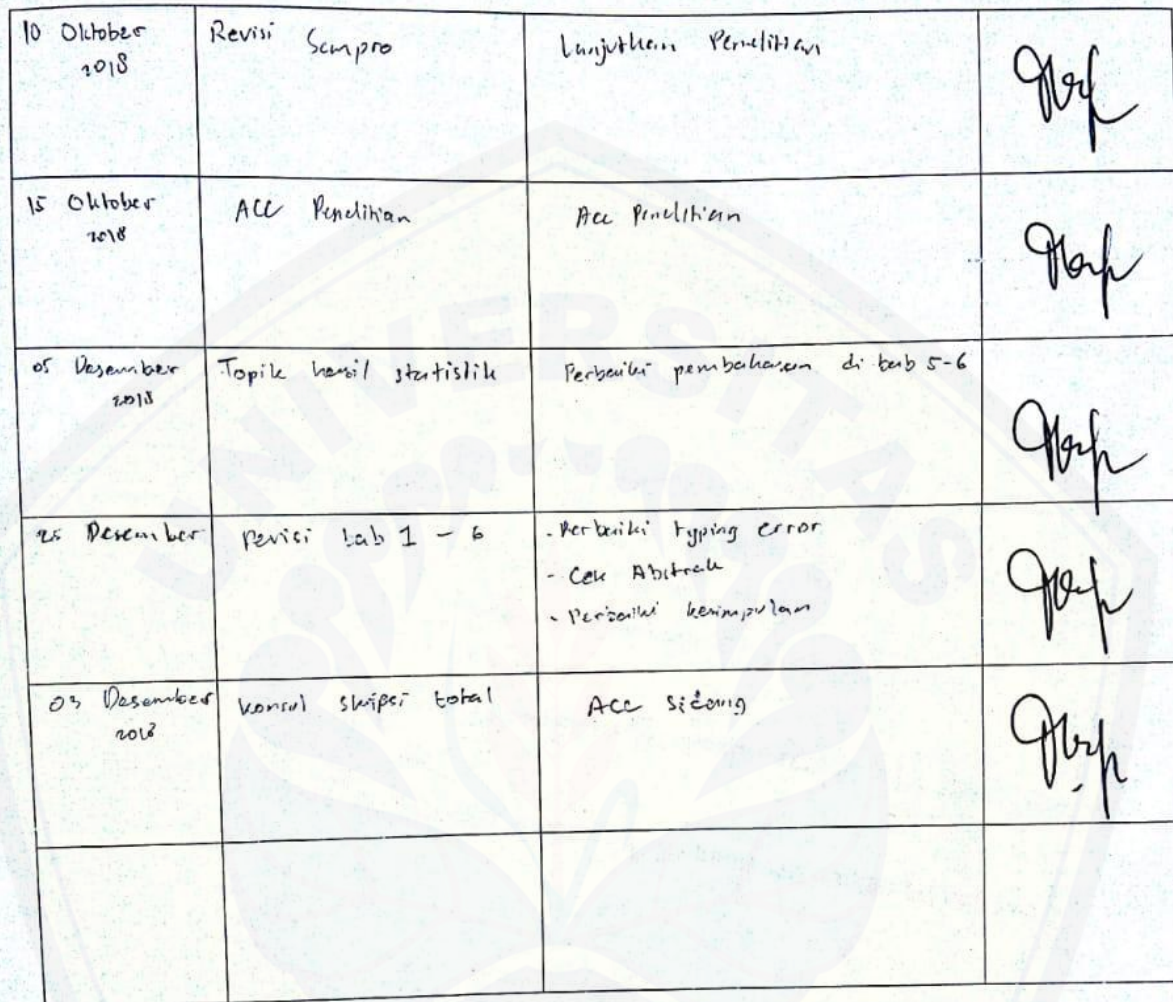 10 Oktober
2018
Revisi Sempro
Lanjutkan Penelitian
15 Oktober
2018
ACC Penelitian
Acc Penelitian
05 Desember
2018
Topik hasil statistik
Perbaiki pembahasan di bab 5-6
25 Desember
revisi bab 1 - 6
- Perbaiki typing error
- Cek Abstrak
- Perbaiki kesimpulan
03 Desember
2018
konsul skripsi total
ACC Sidang
UNIVERSITAS